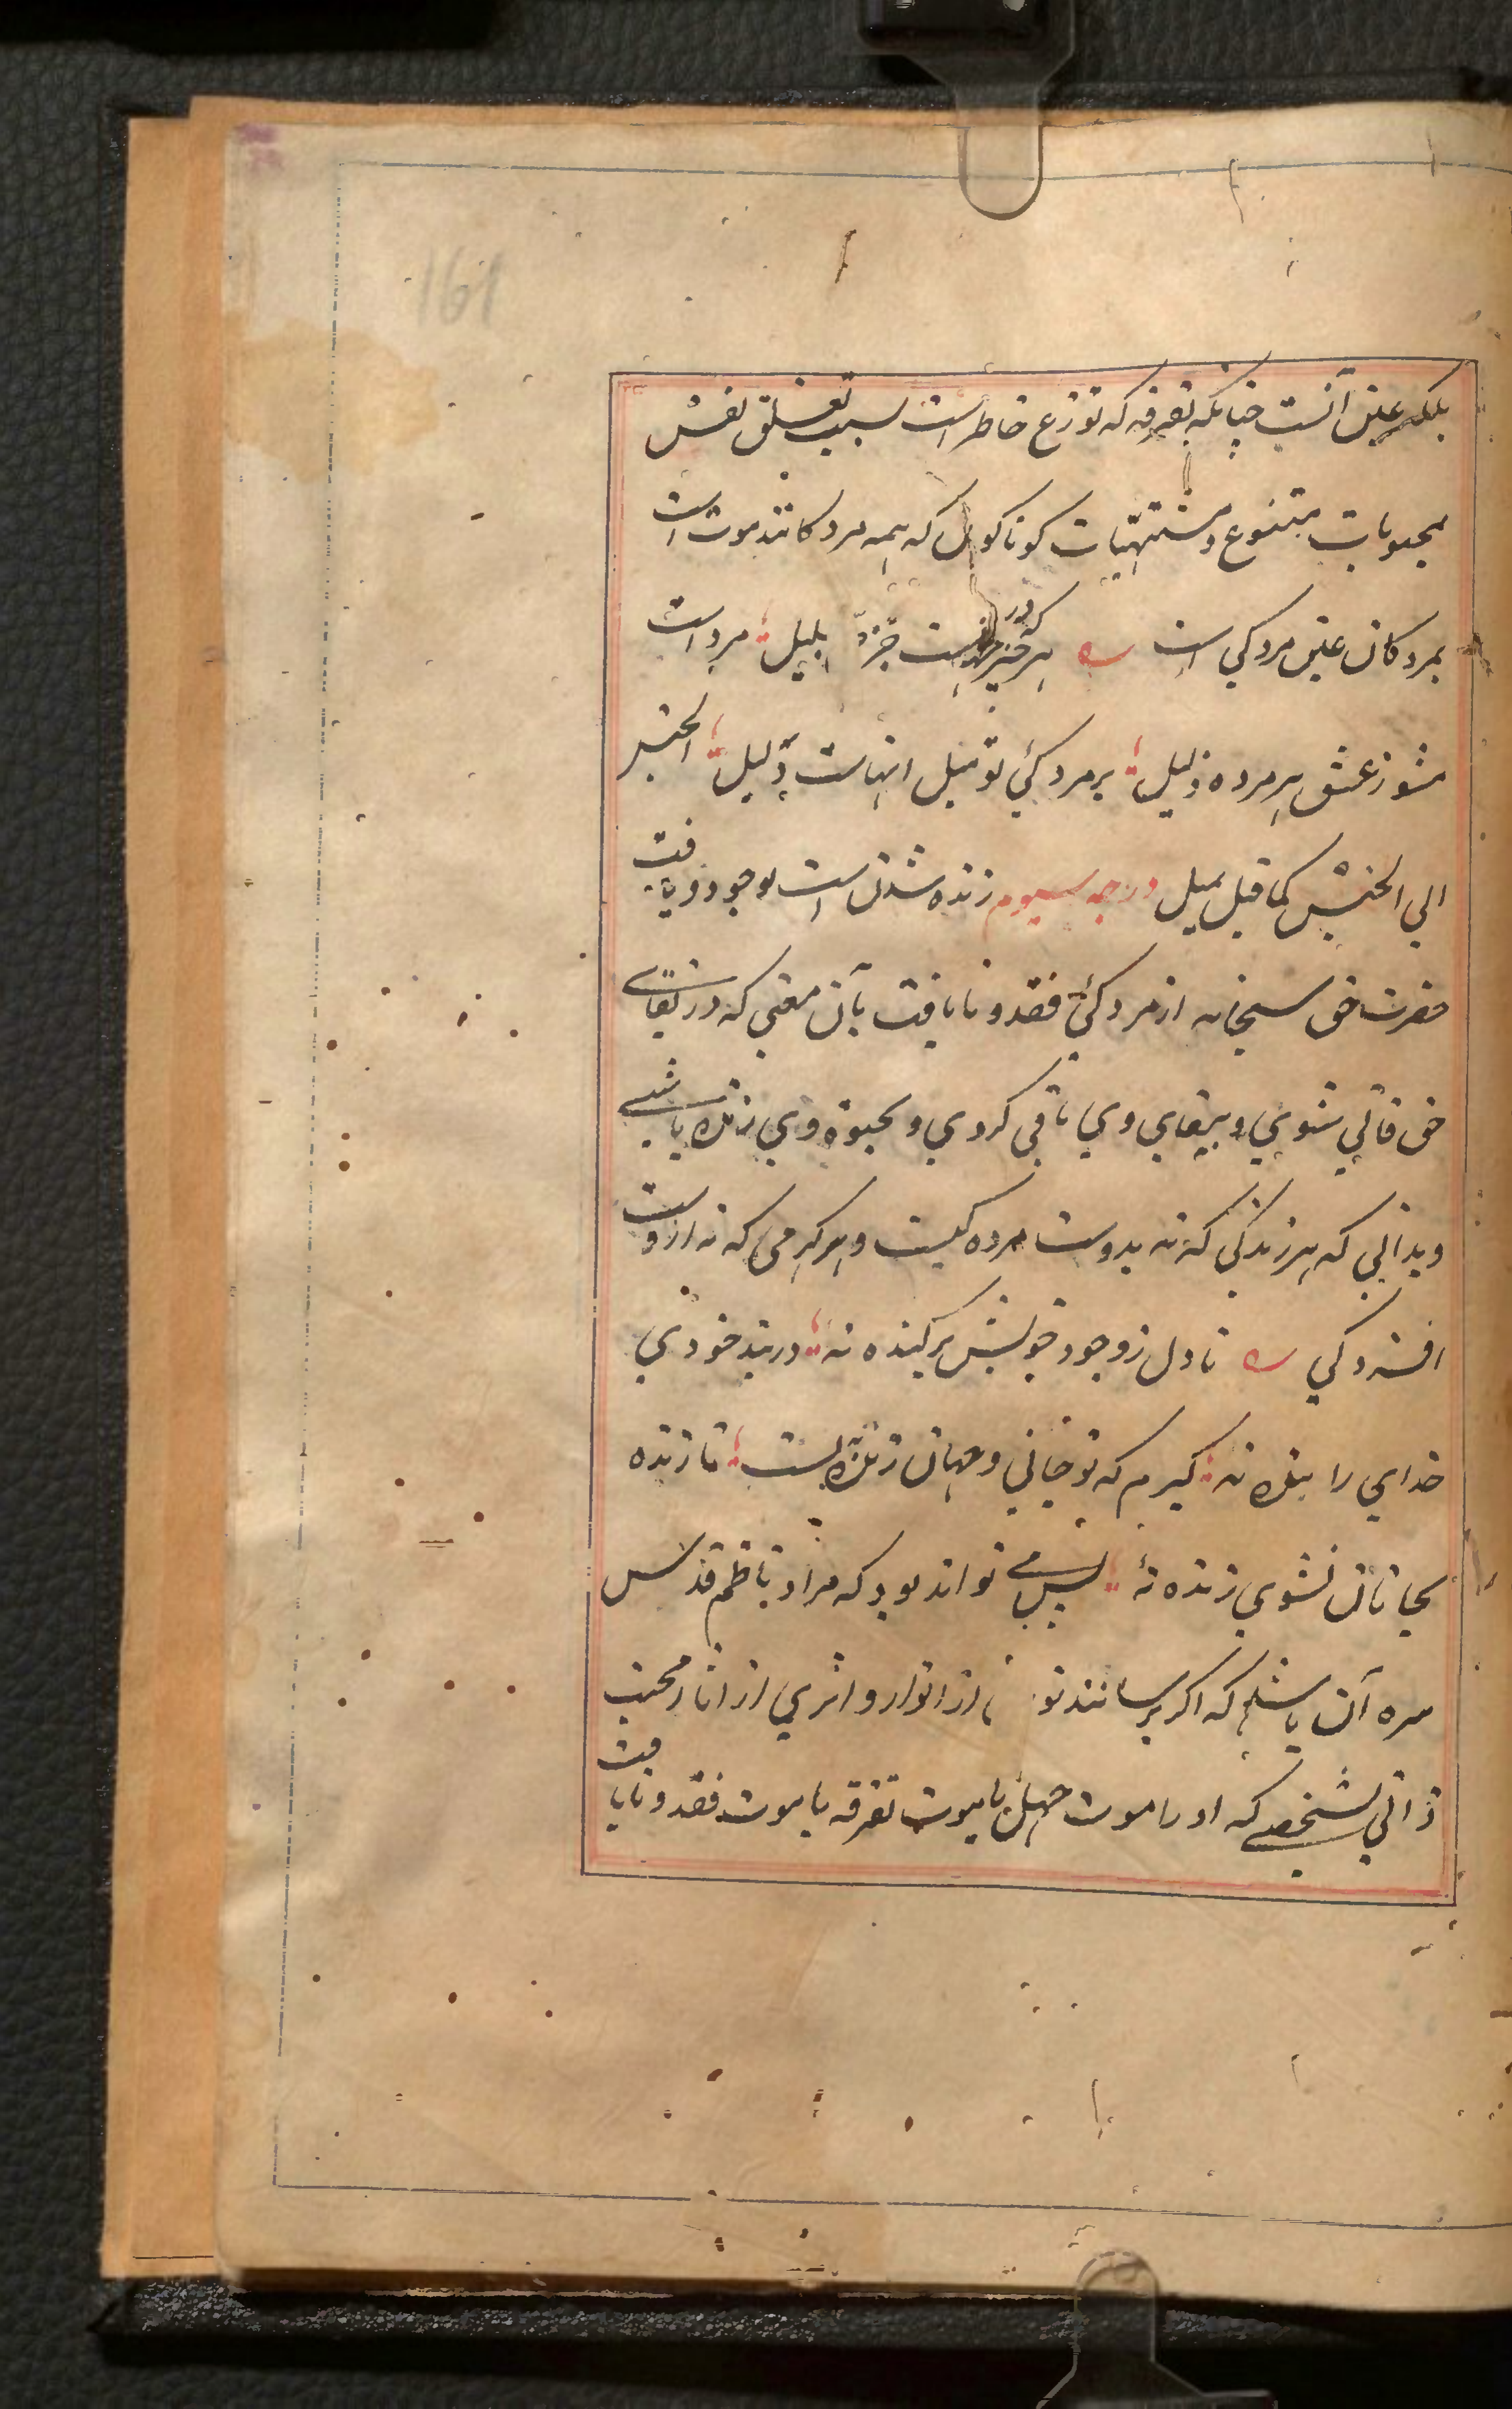 161
بلکه عین آنست چنانکه تفرقه که توزع خاطر است بسبب تعلق نفس
بمحبوبات متنوع و مشتهیات کوناکون که همه مردکانند موت است
بمردکان عین مردکی است که در هر چیز نیست جز بلیل مرد است
مشو زعشق هر مرده ذلیل بر مردکئ تو میل اینهاست دلیل الجنس
الي الجنس کما قیل یمیل درجه سیوم زنده شدن است بوجود ویافت
حضرت حق سبحانه از مردکئ فقد و نایافت بآن معنی که در بقای
حق فانی شوي و ببقاي وي باقي کردي و بحیوة وي زنده باشے
وبداني که هر زندکي که نه بدوست مرده کیست و هر کرمی که نه ازوست
افسردکي تا دل زوجود خویش برکنده نه در بند خودي
خداي را بنده نه کیرم که تو جاني و جهان زنده بتست تا زنده
بجانان نشوي زنده نۀ پس می تواند بود که مراد ناظم قدس
سره آن باشد که اکر برسانند تو از انوار و اثري از اثار محبت
ذاتي بشخصے که او را موت جهل یا موت تفرقه یا موت فقد و نایافت